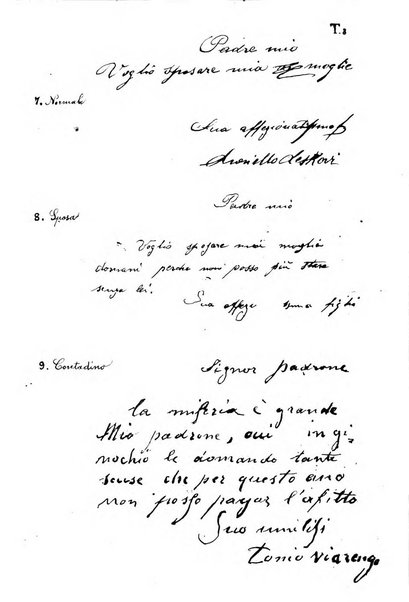 T. 3
Padre mio
Voglio sposare mia moglie
7. Normale
Sua
Padre mio
8. Sposa
Voglio spogare mai moglie
domani perche non posso più stare
senza lei.
Sua affez figli
9. Contadino
Signor padrone
la miseria è grande
Mio padrone, qui in gi
nochio le domando tante
scuse che per questo ano
non posso pagar l'afitto
Suo umilisi
tonio viarengo